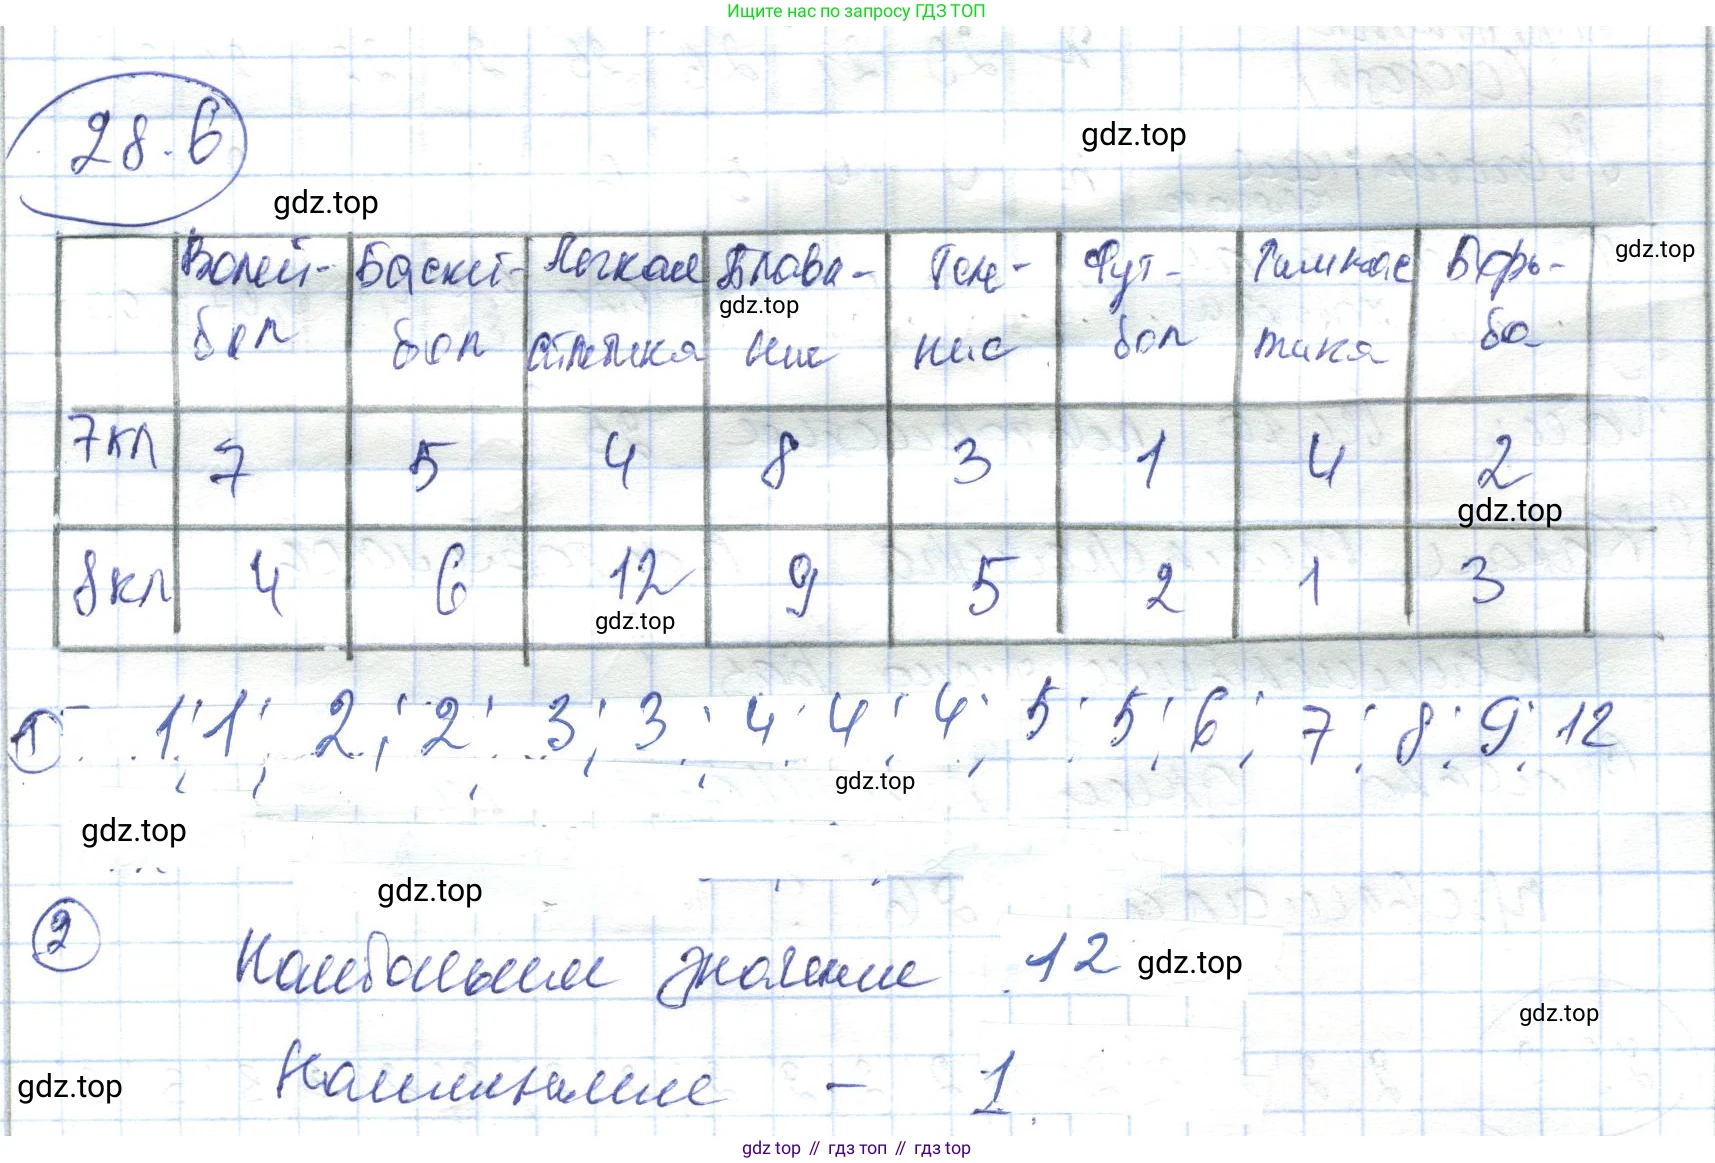 Ищите нас по запросу ГДЗ ТОП
28.6
gdz.top
gdz.top
Волей- Баскет- Легкая Плава- Тен- Фут- Гимнас Борь-
gdz.top
gdz.top
бол бол атлетика ние нис бол тика ба
7кл 7 5 4 8 3 1 4 2
gdz.top
8кл 4 6 12 9 5 2 1 3
gdz.top
1 1; 1; 2; 2; 3; 3; 4; 4; 4; 5; 5; 6; 7; 8; 9; 12
gdz.top
gdz.top
gdz.top
2 Наибольшее значение 12 gdz.top
gdz.top
gdz.top Наименьшее – 1.
gdz top // гдз топ // gdz top